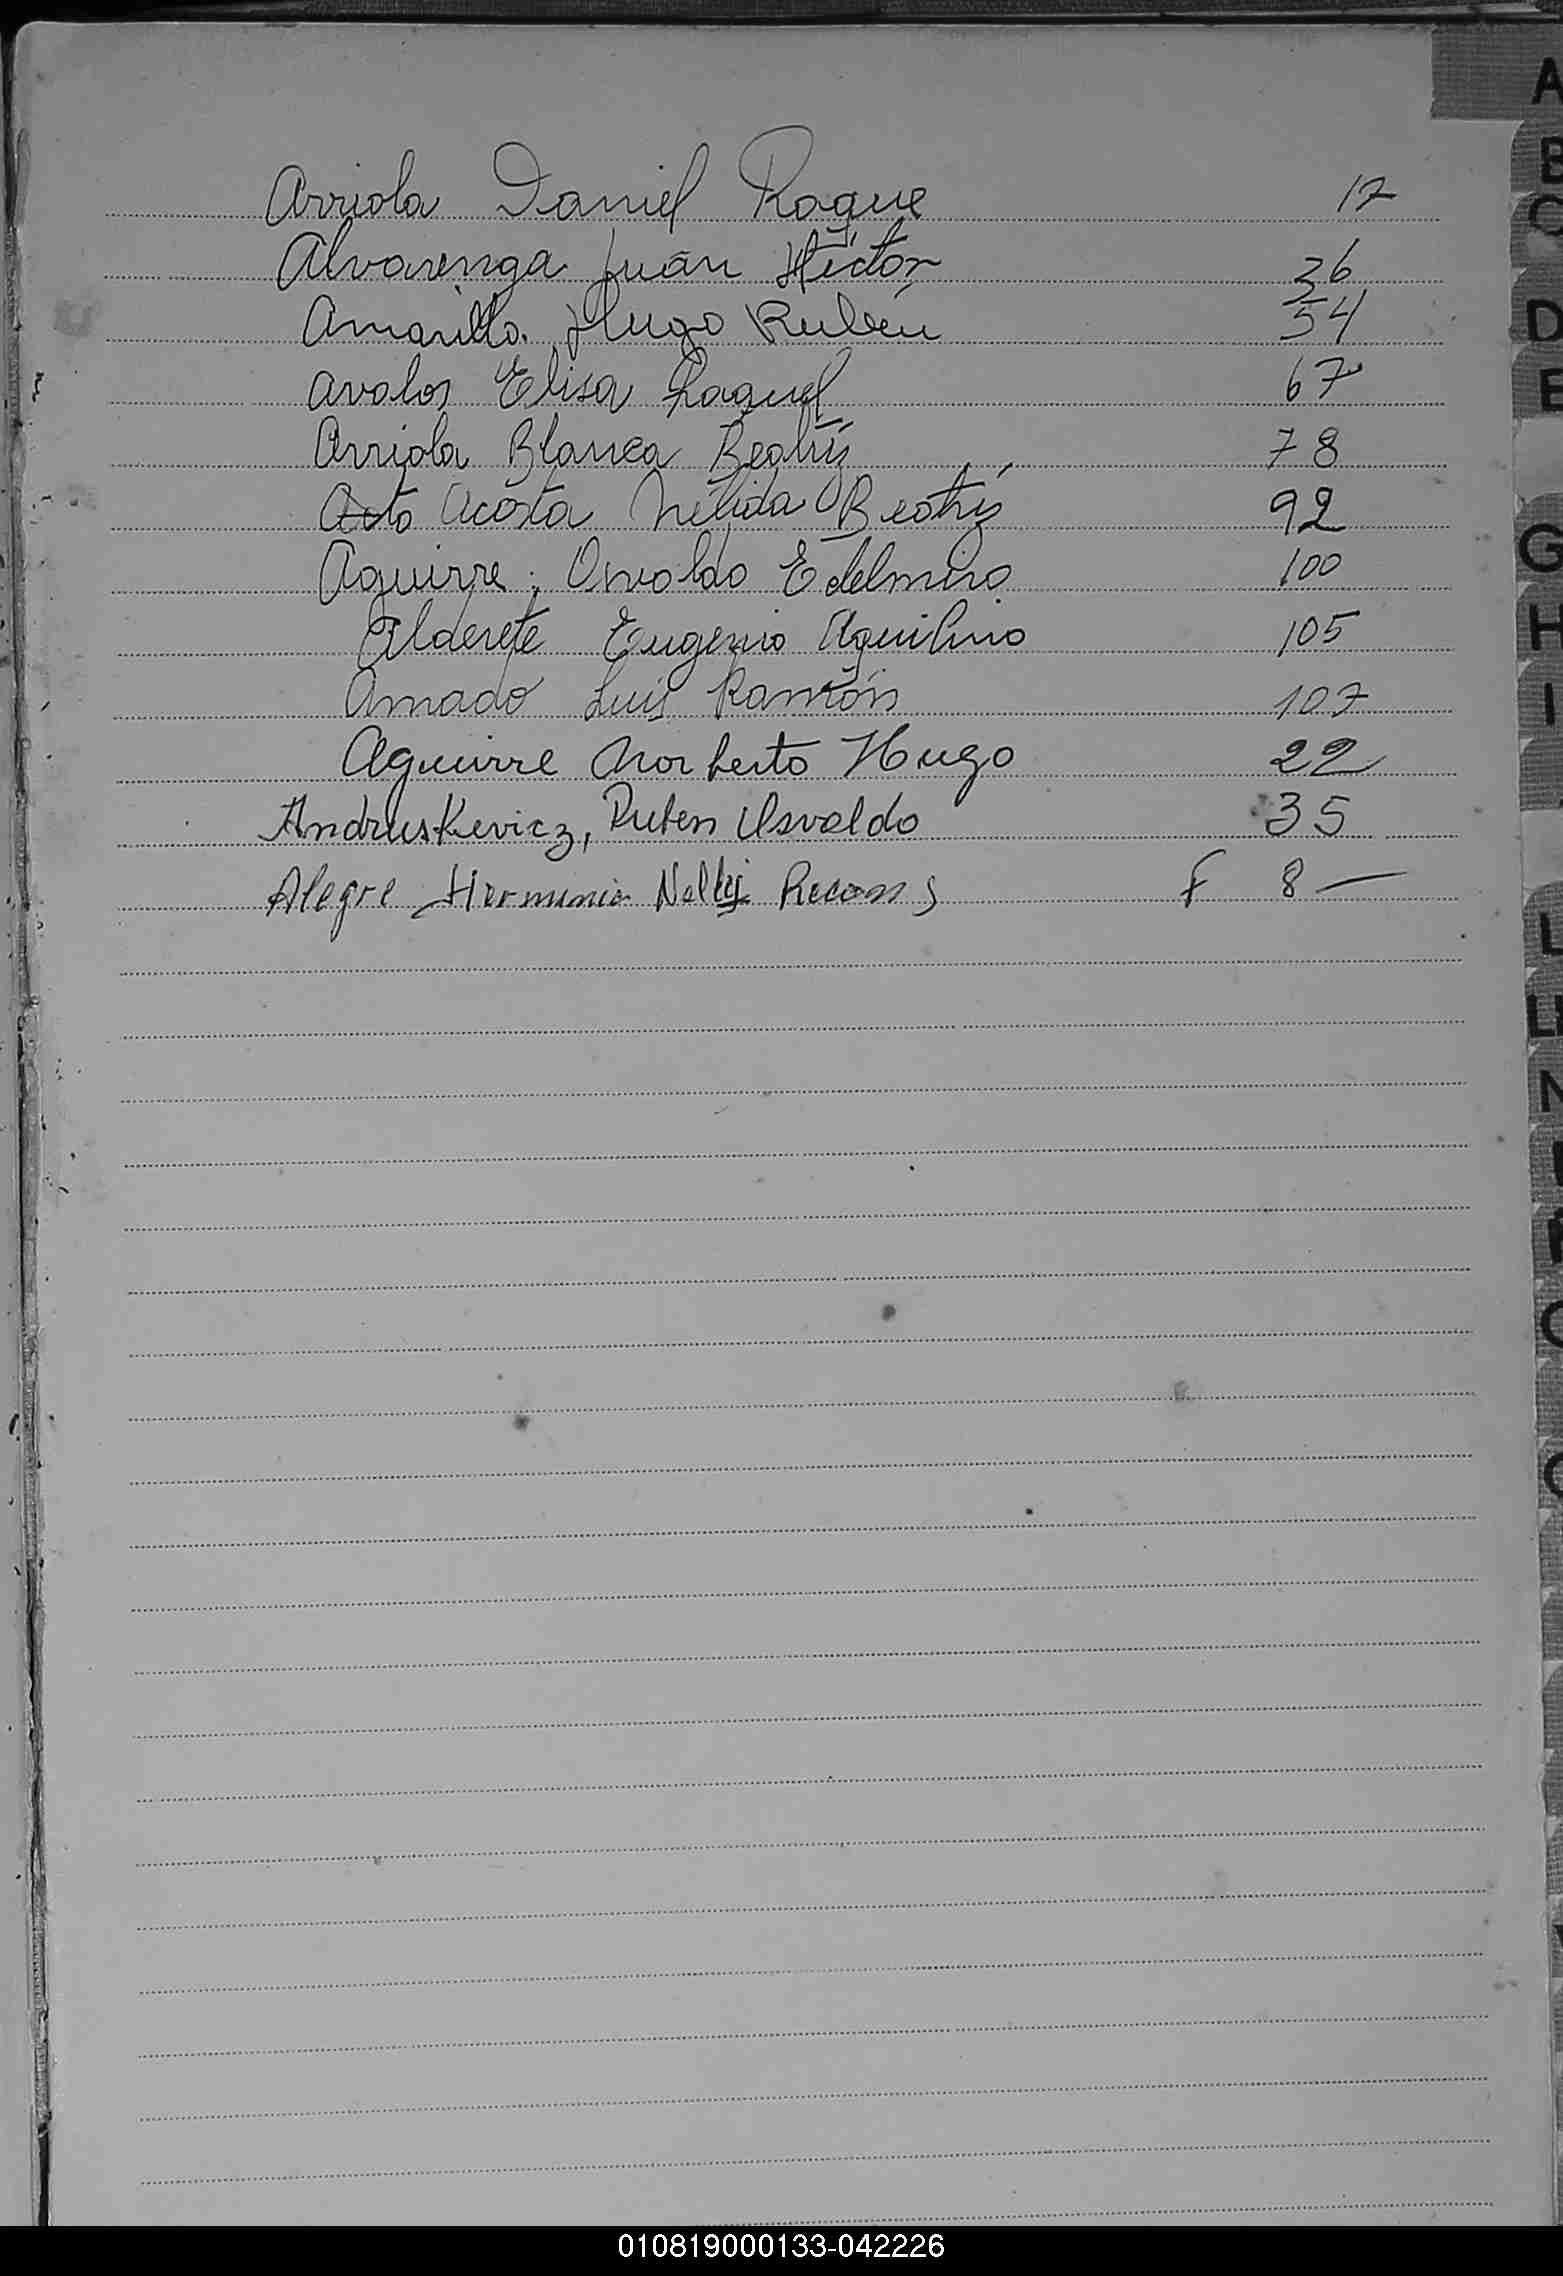 Arriola Daniel Roque 17
Alvarenga Juan Héctor 36
Amarilla Hugo Rubén 54
Avalos Elisa Raquel 67
Arriola Blanca Beatriz 78
Acosta Nélida Beatriz 92
Aguirre Osvaldo Edelmiro 100
Alderete Eugenio Aquilino 105
Amado Luis Ramón 107
Aguirre Norberto Hugo 22
Andruskevicz, Ruben Osvaldo 35
Alegre Herminia Nelly F 8 —
A
B
C
D
E
G
H
I
L
N
010819000133-042226